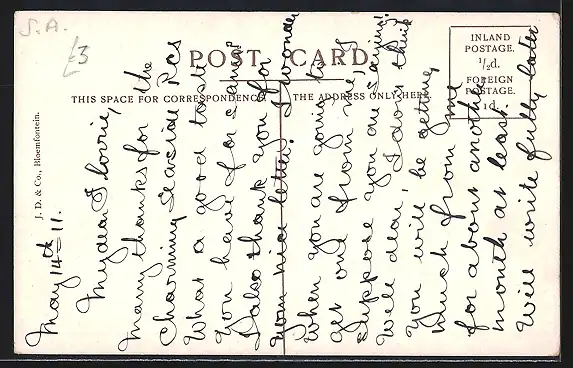 S.A.
£3
POST CARD.
THIS SPACE FOR CORRESPONDENCE
THE ADDRESS ONLY HERE
INLAND
POSTAGE.
1/2d.
FOREIGN
POSTAGE.
1d.
J. D. & Co., Bloemfontein.
May 14th 11.
My dear Florrie,
Many thanks for the
Charming Seaside Pcs
What a good taste
you have for same?
I also thank you for
your nice letter. I wonder
When you are going to
get one from me, I
suppose you are saying!
Well dear, I don't think
you will be getting
much from me
for about another
month at least.
Will write fully later